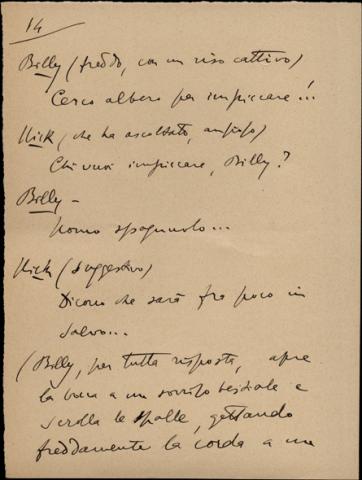 14
Billy (freddo, con un riso cattivo)
Cerco albero per impiccare!...
Nick (che ha ascoltato, ansioso)
Chi vuoi impiccare, Billy?
Billy -
Uomo spagnuolo...
Nick (suggestivo)
Dicono che sarà fra poco in
salvo...
(Billy, per tutta risposta, apre
la bocca a un sorriso bestiale e
scrolla le spalle, gettando
freddamente la corda a un